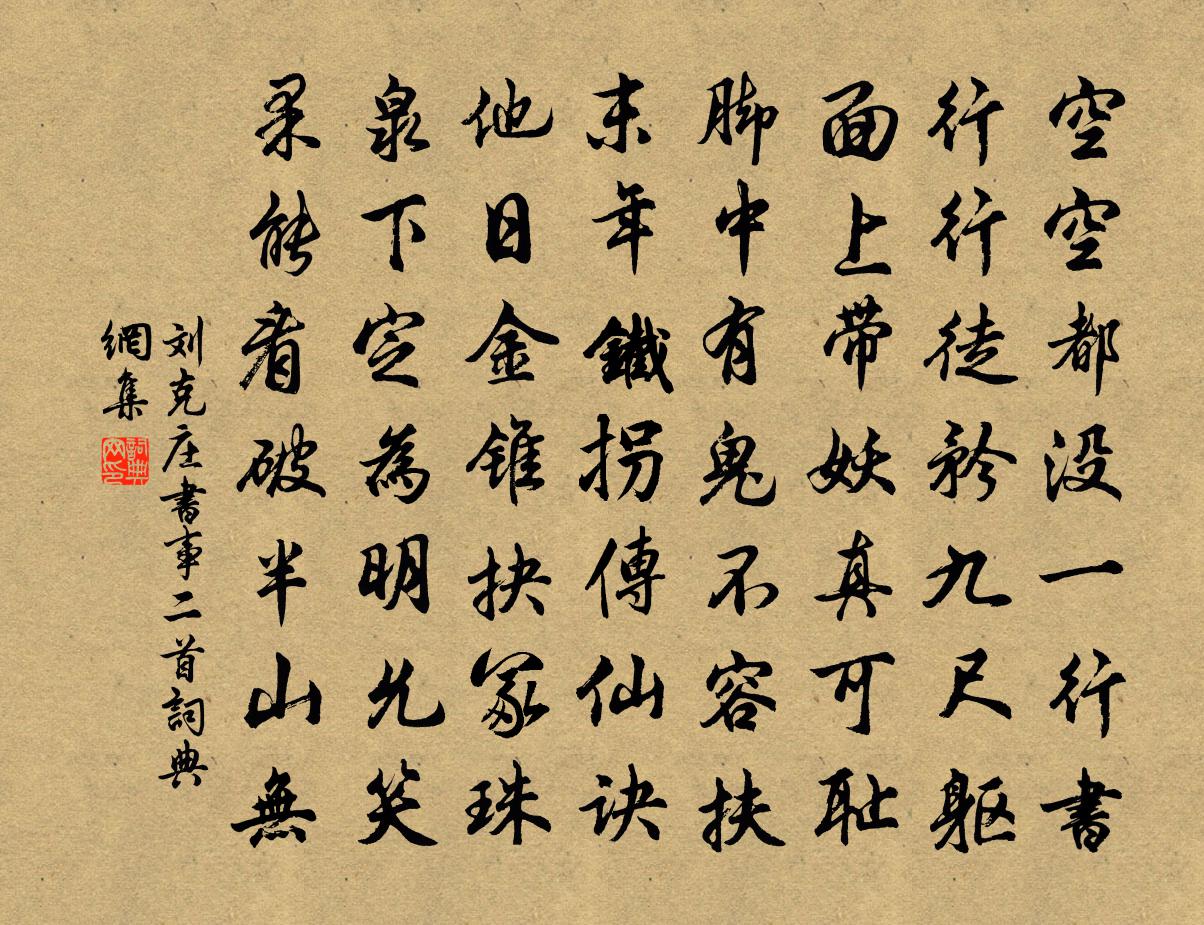 空空都没一行書
行行徒矜九尺躯
面上带妖真可耻
脚中有鬼不容扶
末年鐵拐傳仙诀
他日金錐抉冢珠
泉下定為明允笑
果能看破半山無
刘克庄書事二首詞典
網集
詞典
网印